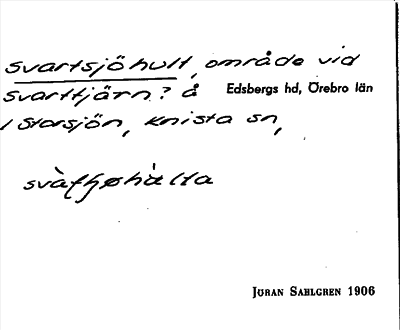 Svartsjöhult, område vid
Svarttjärn? å Edsbergs hd, Örebro län
i Storsjön, Knista sn,
svàꞎꞎøhàlta
Jöran Sahlgren 1906